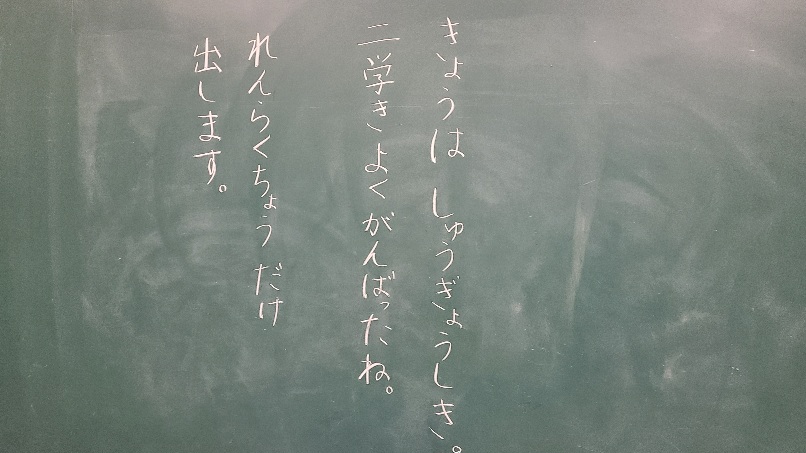 きょうは しゅうぎょうしき。
二学きよくがんばったね。
れんらくちょう だけ
出します。